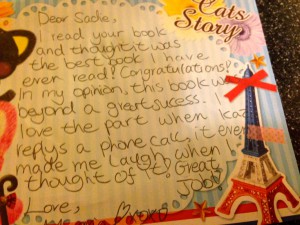 Cats
Story
Dear Sadie,
I read your book
and thought it was
the best book I have
ever read! Congratulations!
In my opinion, this book w
beyond a great sucess. I
love the part when
replys a phone call, it ever
made me laugh when I
thought of it. Great
Job!
Love,